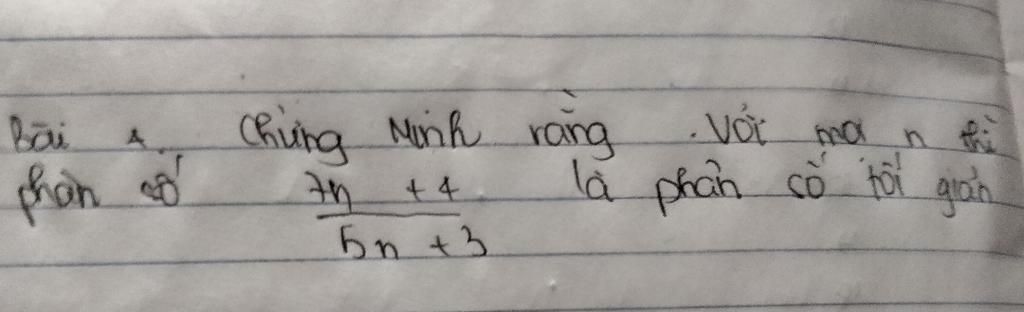 Bài 4. Chứng Minh rằng. Với mọi n thì
phân số 7n + 4 là phân số tối giản
5n + 3